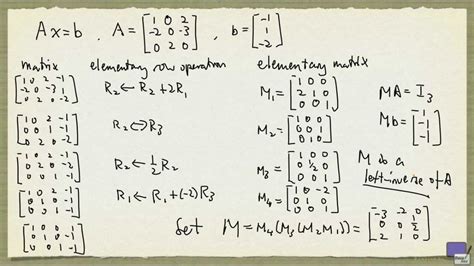 Ax=b , A = [1 0 2; -2 0 -3; 0 2 0] , b = [-1; 1; -2]
matrix elementary row operation elementary matrix
[1 0 2 -1; -2 0 -3 1; 0 2 0 -2] R₂ ← R₂ + 2R₁ M₁ = [1 0 0; 2 1 0; 0 0 1] MA = I₃
[1 0 2 -1; 0 0 1 -1; 0 2 0 -2] R₂ ↔ R₃ M₂ = [1 0 0; 0 0 1; 0 1 0] Mb = [1; -1; -1]
[1 0 2 -1; 0 2 0 -2; 0 0 1 -1] R₂ ← ½R₂ M₃ = [1 0 0; 0 ½ 0; 0 0 1] M is a
left-inverse of A
[1 0 2 -1; 0 1 0 -1; 0 0 1 -1] R₁ ← R₁ + (-2)R₃ M₄ = [1 0 -2; 0 1 0; 0 0 1]
[1 0 0 1; 0 1 0 -1; 0 0 1 -1] Set M = M₄(M₃(M₂M₁)) = [-3 -2 0; 0 0 ½; 2 1 0]